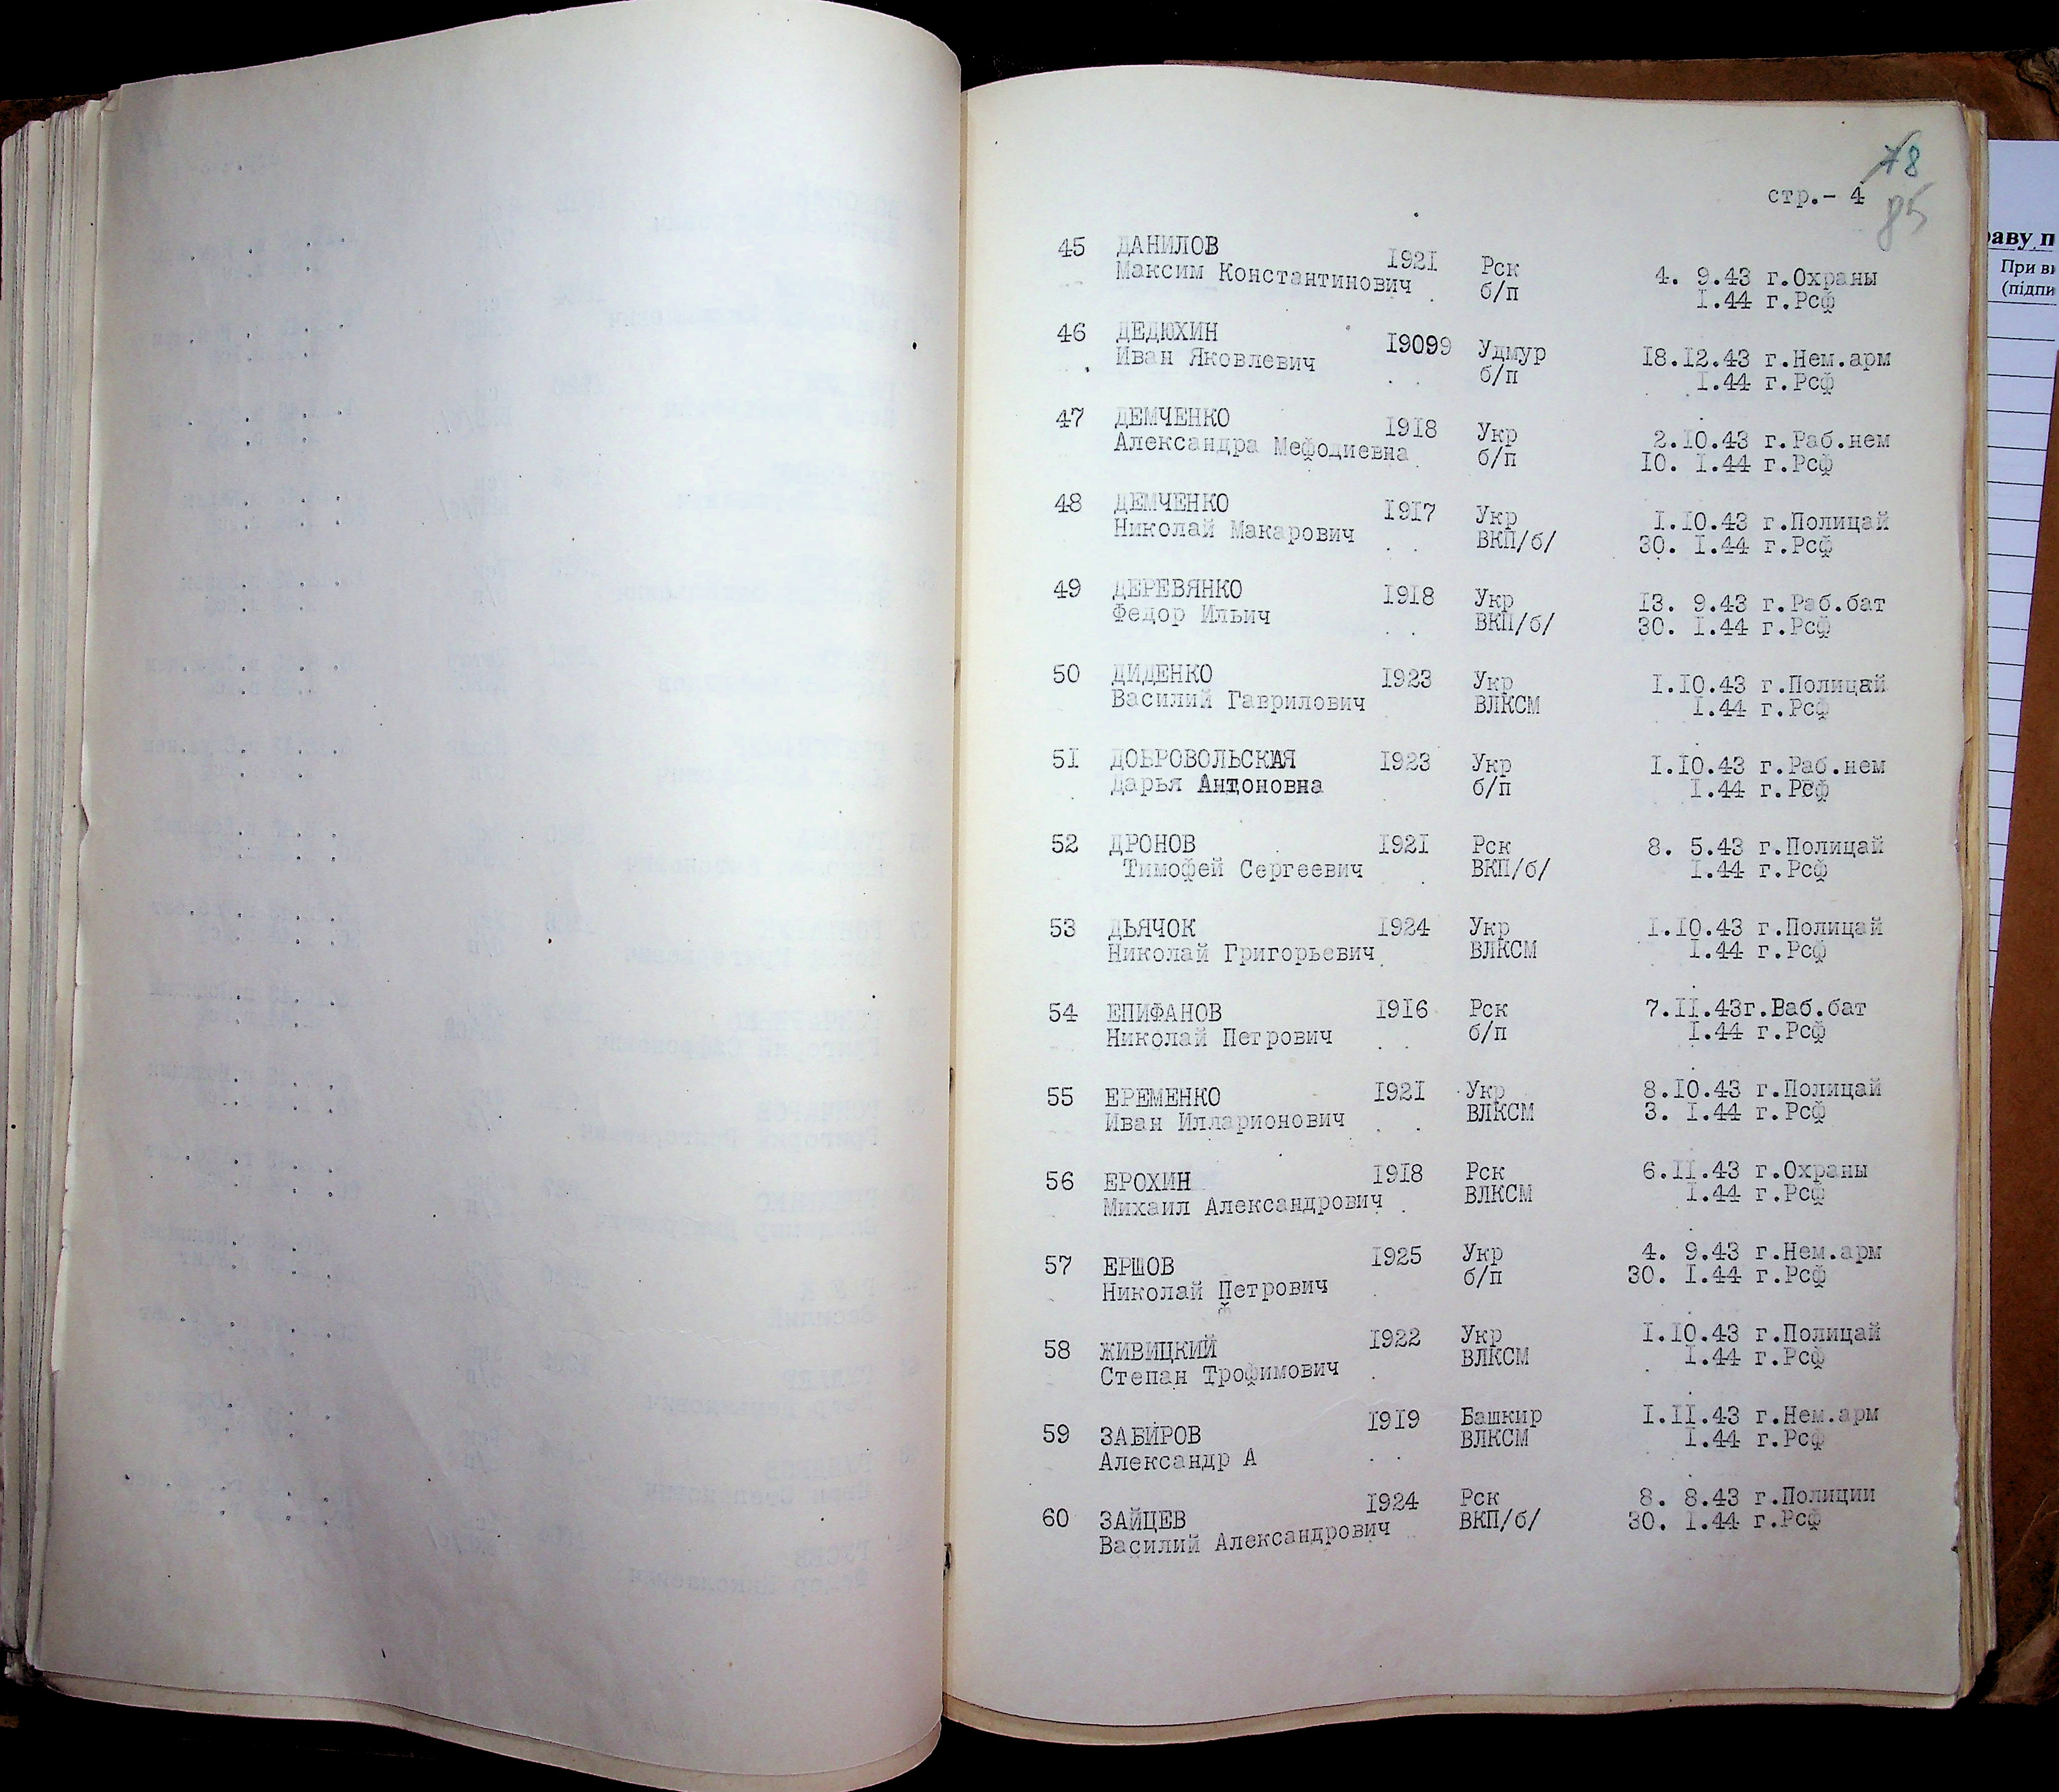 78
стр.- 4
85
45 ДАНИЛОВ 1921 Рск 4. 9.43 г.Охраны
Максим Константинович б/п I.44 г.Рсф
46 ДЕДЮХИН 19099 Удмур 18.12.43 г.Нем.арм
Иван Яковлевич б/п I.44 г.Рсф
47 ДЕМЧЕНКО 1918 Укр 2.10.43 г.Раб.нем
Александра Мефодиевна б/п 10. I.44 г.Рсф
48 ДЕМЧЕНКО 1917 Укр I.10.43 г.Полицай
Николай Макарович ВКП/б/ 30. I.44 г.Рсф
49 ДЕРЕВЯНКО 1918 Укр 13. 9.43 г.Раб.бат
Федор Ильич ВКП/б/ 30. I.44 г.Рсф
50 ДИДЕНКО 1923 Укр I.10.43 г.Полицай
Василий Гаврилович ВЛКСМ I.44 г.Рсф
51 ДОБРОВОЛЬСКАЯ 1923 Укр I.10.43 г.Раб.нем
Дарья Антоновна б/п I.44 г.Рсф
52 ДРОНОВ 1921 Рск 8. 5.43 г.Полицай
Тимофей Сергеевич ВКП/б/ I.44 г.Рсф
53 ДЬЯЧОК 1924 Укр I.10.43 г.Полицай
Николай Григорьевич ВЛКСМ I.44 г.Рсф
54 ЕПИФАНОВ 1916 Рск 7.II.43г.Ваб.бат
Николай Петрович б/п I.44 г.Рсф
55 ЕРЕМЕНКО 1921 Укр 8.10.43 г.Полицай
Иван Илларионович ВЛКСМ 3. I.44 г.Рсф
56 ЕРОХИН 1918 Рск 6.II.43 г.Охраны
Михаил Александрович ВЛКСМ I.44 г.Рсф
57 ЕРШОВ 1925 Укр 4. 9.43 г.Нем.арм
Николай Петрович б/п 30. I.44 г.Рсф
58 ЖИВИЦКИЙ 1922 Укр I.10.43 г.Полицай
Степан Трофимович ВЛКСМ I.44 г.Рсф
59 ЗАБИРОВ 1919 Башкир I.II.43 г.Нем.арм
Александр А ВЛКСМ I.44 г.Рсф
60 ЗАЙЦЕВ 1924 Рск 8. 8.43 г.Полиции
Василий Александрович ВКП/б/ 30. I.44 г.Рсф